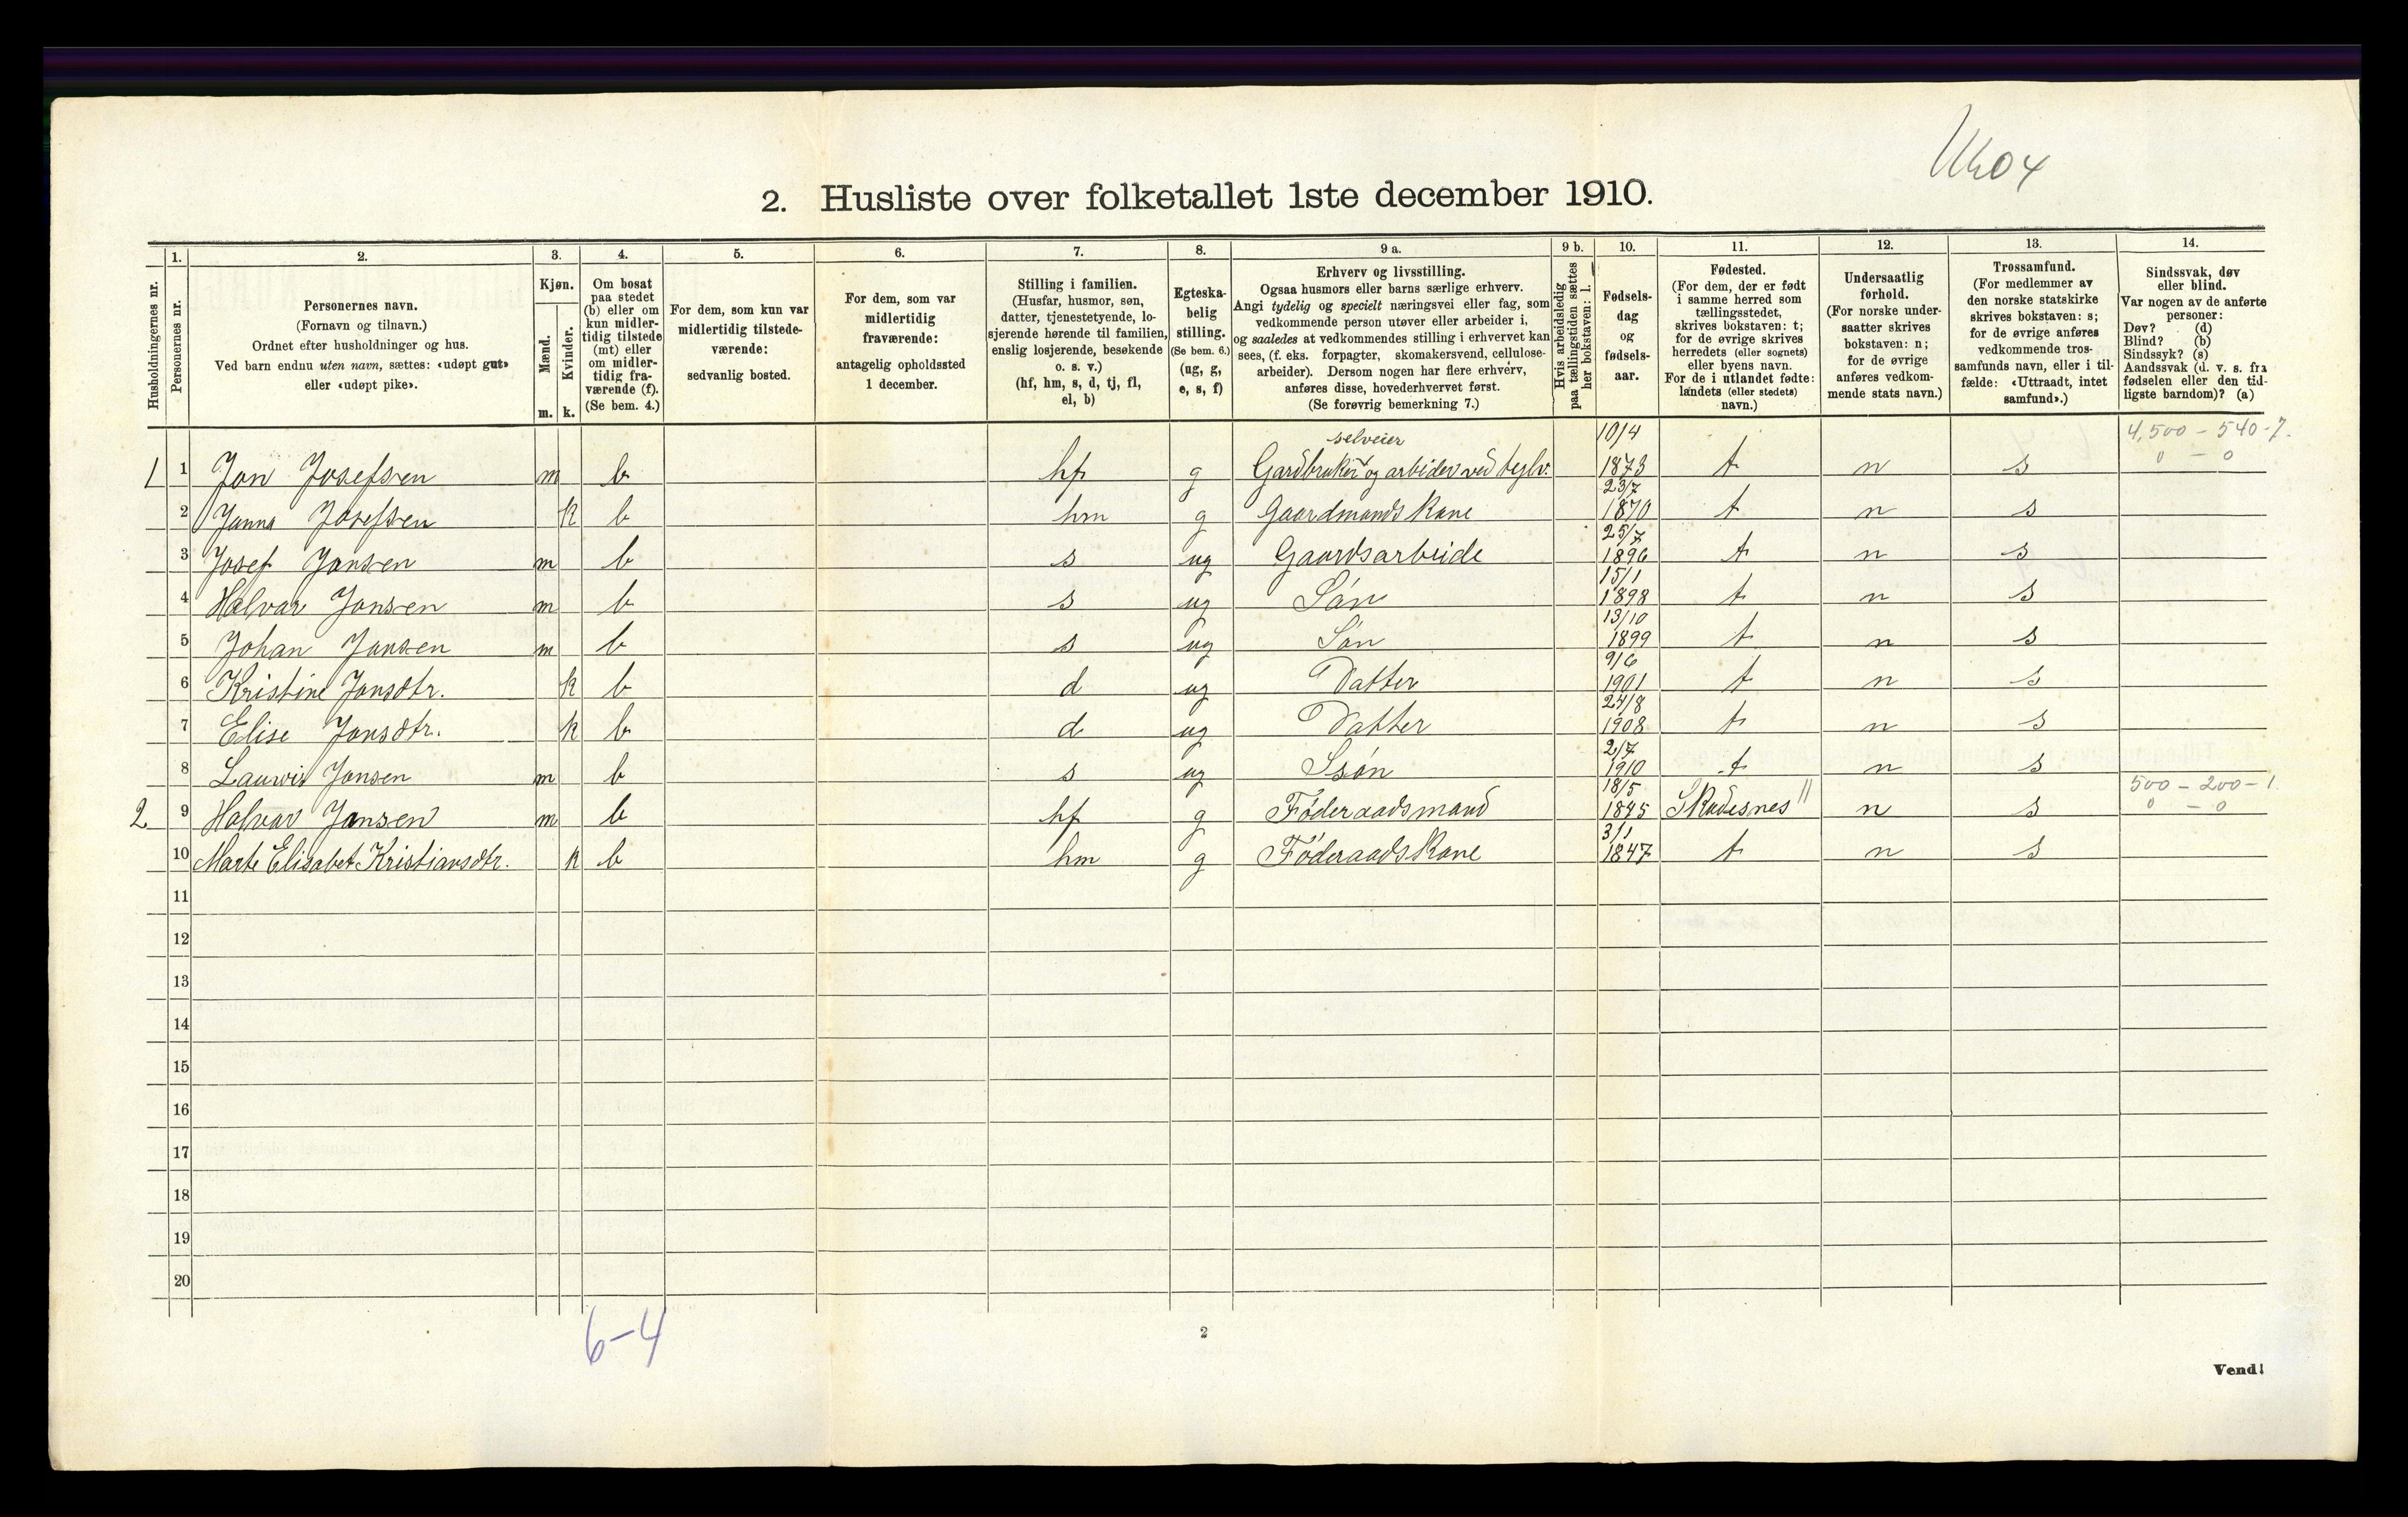 2. Husliste over folketallet 1ste december 1910.
Husholdningernes nr.
1.
Personernes nr.
2.
Personernes navn.
(Fornavn og tilnavn.)
Ordnet efter husholdninger og hus.
Ved barn endnu uten navn, sættes: «udøpt gut»
eller «udøpt pike».
3.
Kjøn.
Mænd.
Kvinder.
m.
k.
4.
Om bosat
paa stedet
(b) eller om
kun midler-
tidig tilstede
(mt) eller
om midler-
tidig fra-
værende (f).
(Se bem. 4.)
5.
For dem, som kun var
midlertidig tilstede-
værende:
sedvanlig bosted.
6.
For dem, som var
midlertidig
fraværende:
antagelig opholdssted
1 december.
7.
Stilling i familien.
(Husfar, husmor, søn,
datter, tjenestetyende, lo-
sjerende hørende til familien,
enslig losjerende, besøkende
o. s. v.)
(hf, hm, s, d, tj, fl,
el, b)
8.
Egteska-
belig
stilling.
(Se bem. 6.)
(ug, g,
e, s, f)
9 a.
Erhverv og livsstilling.
Ogsaa husmors eller barns særlige erhverv.
Angi tydelig og specielt næringsvei eller fag, som
vedkommende person utøver eller arbeider i,
og saaledes at vedkommendes stilling i erhvervet kan
sees, (f. eks. forpagter, skomakersvend, cellulose-
arbeider). Dersom nogen har flere erhverv,
anføres disse, hovederhvervet først.
(Se forøvrig bemerkning 7.)
9 b.
Hvis arbeidsledig
paa tællingstiden sættes
her bokstaven: l.
10.
Fødsels-
dag
og
fødsels-
aar.
11.
Fødested.
(For dem, der er født
i samme herred som
tællingsstedet,
skrives bokstaven: t;
for de øvrige skrives
herredets (eller sognets)
eller byens navn.
For de i utlandet fødte:
landets (eller stedets)
navn.)
12.
Undersaatlig
forhold.
(For norske under-
saatter skrives
bokstaven: n;
for de øvrige
anføres vedkom-
mende stats navn.)
13.
Trossamfund.
(For medlemmer av
den norske statskirke
skrives bokstaven: s;
for de øvrige anføres
vedkommende tros-
samfunds navn, eller i til-
fælde: «Uttraadt, intet
samfund».)
14.
Sindssvak, døv
eller blind.
Var nogen av de anførte
personer:
Døv? (d)
Blind? (b)
Sindssyk? (s)
Aandssvak (d. v. s. fra
fødselen eller den tid-
ligste barndom)? (a)
selveier 10/4 4,500 - 540-7.
1 1 Jon Josefsen m b hf g Gardbruker og arbider ved 1873 t n s 0 - 0
23/7
2 Janna Josefsen k b hm g Gaardmands Kone 1870 t n s
25/7
3 Josef Jonsen m b s ug Gaardsarbeide 1896 t n s
15/1
4 Halvar Jonsen m b s ug Søn 1898 t n s
13/10
5 Johan Jonsen m b s ug Søn 1899 t n s
9/6
6 Kristine Jonsdtr. k b d ug Datter 1901 t n s
24/8
7 Elise Jonsdtr. k b d ug Datter 1908 t n s
2/7
8 Lauwis Jonsen m b s ug Søn 1910 t n s
18/5 500 - 200 - 1
2 9 Halvar Jansen m b hf g Føderaadsmand 1845 Skudesnes n s 0 - 0
3/1
10 Marte Elisabet Kristiansdtr. k b hm g Føderaads Kone 1847 t n s
11
12
13
14
15
16
17
18
19
20
6-4
2
Vend!